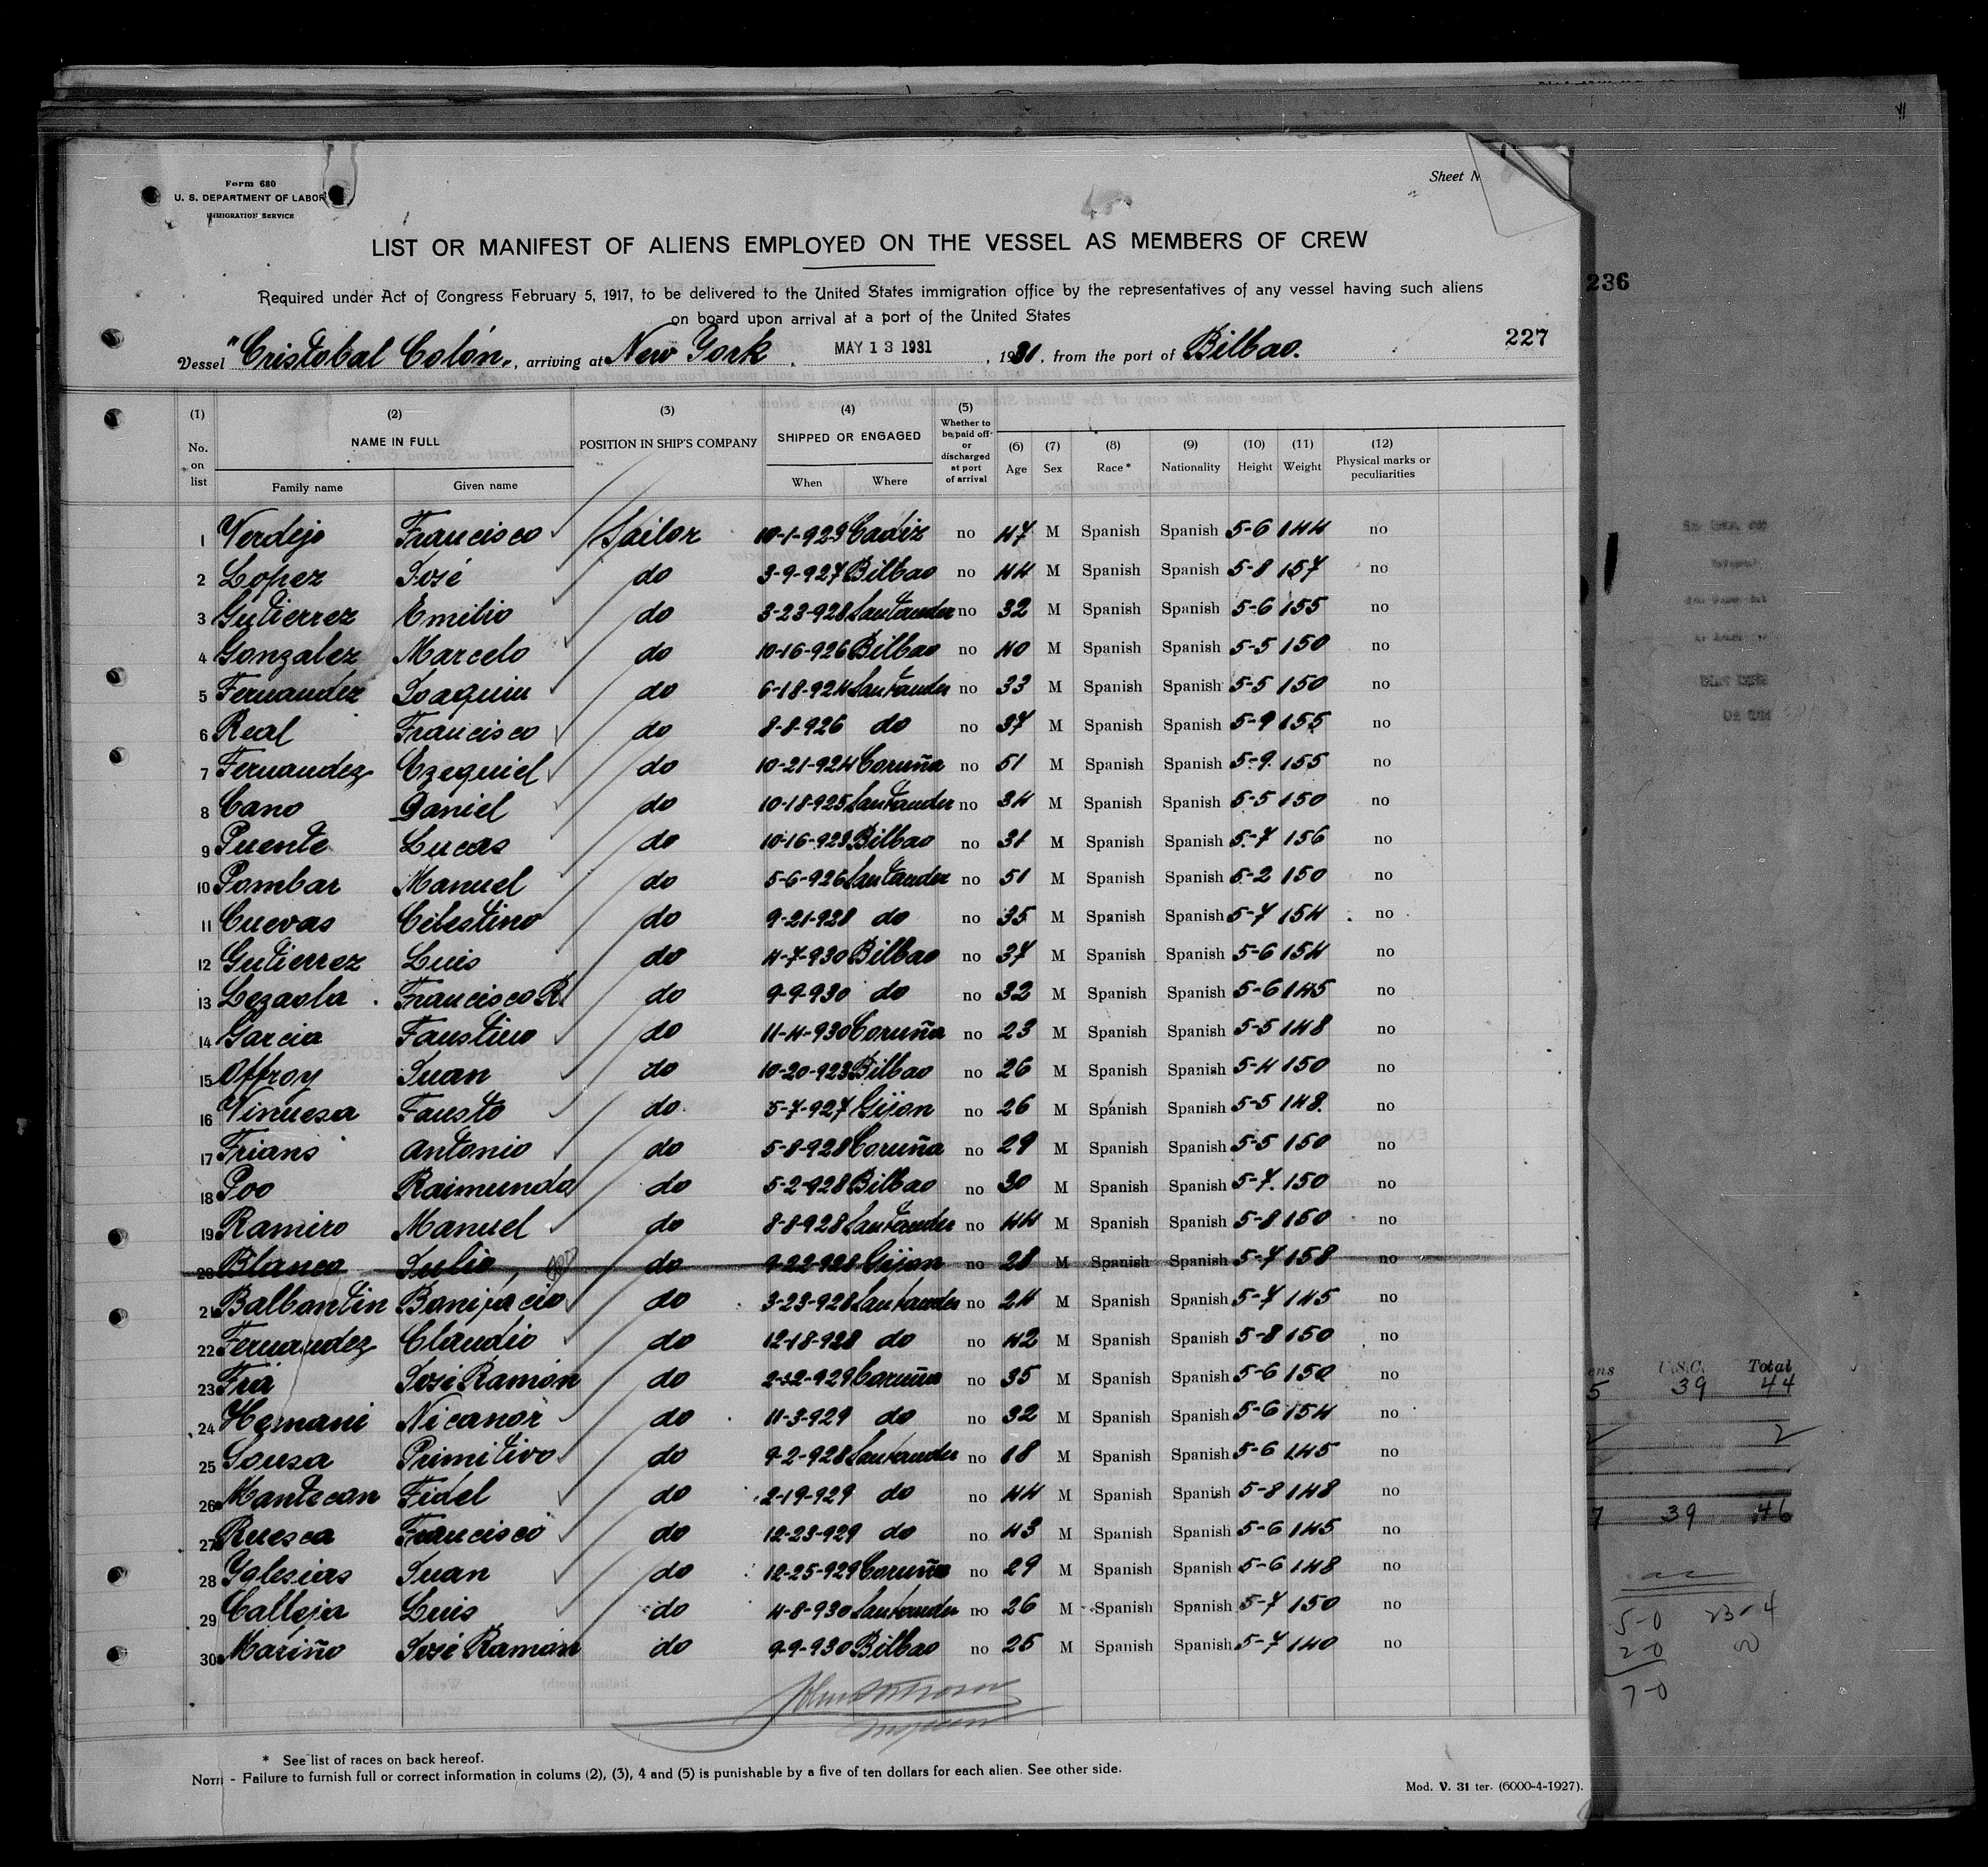 Form 680
U. S. DEPARTMENT OF LABOR
IMMIGRATION SERVICE
Sheet N
LIST OR MANIFEST OF ALIENS EMPLOYED ON THE VESSEL AS MEMBERS OF CREW
Required under Act of Congress February 5, 1917, to be delivered to the United States immigration office by the representatives of any vessel having such aliens
on board upon arrival at a port of the United States
236
227
Vessel "Cristobal Colón", arriving at New York, MAY 13 1931, 1931, from the port of Bilbao.
(1) No. on list (2) NAME IN FULL Family name Given name (3) POSITION IN SHIP'S COMPANY (4) SHIPPED OR ENGAGED When Where (5) Whether to be paid off or discharged at port of arrival (6) Age (7) Sex (8) Race* (9) Nationality (10) Height (11) Weight (12) Physical marks or peculiarities
1 Verdejo Francisco Sailor 10-1-929 Cadiz no 47 M Spanish Spanish 5-6 144 no
2 Lopez José do 3-9-927 Bilbao no 44 M Spanish Spanish 5-8 157 no
3 Gutierrez Emilio do 3-23-928 Santander no 32 M Spanish Spanish 5-6 155 no
4 Gonzalez Marcelo do 10-16-926 Bilbao no 40 M Spanish Spanish 5-5 150 no
5 Fernandez Joaquin do 6-18-924 Santander no 33 M Spanish Spanish 5-5 150 no
6 Real Francisco do 8-8-926 do no 37 M Spanish Spanish 5-9 155 no
7 Fernandez Ezequiel do 10-21-924 Coruña no 51 M Spanish Spanish 5-9 155 no
8 Cano Daniel do 10-18-925 Santander no 34 M Spanish Spanish 5-5 150 no
9 Puente Lucas do 10-16-928 Bilbao no 31 M Spanish Spanish 5-7 156 no
10 Pombar Manuel do 5-6-926 Santander no 51 M Spanish Spanish 5-2 150 no
11 Cuevas Celestino do 9-21-928 do no 35 M Spanish Spanish 5-7 154 no
12 Gutierrez Luis do 4-7-930 Bilbao no 37 M Spanish Spanish 5-6 154 no
13 Lezaola Francisco R. do 9-9-930 do no 32 M Spanish Spanish 5-6 145 no
14 Garcia Faustino do 11-4-930 Coruña no 23 M Spanish Spanish 5-5 148 no
15 Offroy Juan do 10-20-923 Bilbao no 26 M Spanish Spanish 5-4 150 no
16 Vinuesa Fausto do 5-7-927 Gijon no 26 M Spanish Spanish 5-5 148 no
17 Frians Antonio do 5-8-928 Coruña no 29 M Spanish Spanish 5-5 150 no
18 Poo Raimundo do 5-2-928 Bilbao no 30 M Spanish Spanish 5-7 150 no
19 Ramiro Manuel do 8-8-928 Santander no 44 M Spanish Spanish 5-8 150 no
20 Blanco Julio, do 9-22-928 Gijon no 28 M Spanish Spanish 5-7 158 no
21 Balbontin Bonifacio do 3-23-928 Santander no 24 M Spanish Spanish 5-7 145 no
22 Fernandez Claudio do 12-18-928 do no 42 M Spanish Spanish 5-8 150 no
23 Fria José Ramón do 2-12-929 Coruña no 35 M Spanish Spanish 5-6 150 no
24 Hemani Nicanor do 11-3-929 do no 32 M Spanish Spanish 5-6 154 no
25 Sousa Primitivo do 9-2-928 Santander no 18 M Spanish Spanish 5-6 145 no
26 Mantecan Fidel do 2-19-929 do no 44 M Spanish Spanish 5-8 148 no
27 Ruesca Francisco do 12-23-929 do no 43 M Spanish Spanish 5-6 145 no
28 Yglesias Juan do 12-25-929 Coruña no 29 M Spanish Spanish 5-6 148 no
29 Calleja Luis do 4-8-930 Santander no 26 M Spanish Spanish 5-7 150 no
30 Mariño José Ramón do 9-9-930 Bilbao no 25 M Spanish Spanish 5-7 140 no
* See list of races on back hereof.
NOTE - Failure to furnish full or correct information in colums (2), (3), 4 and (5) is punishable by a five of ten dollars for each alien. See other side.
Mod. V. 31 ter. (6000-4-1927).
ens U.S.C. Total
5 39 44
2 2
7 39 46
5-0 23-4
2-0
7-0